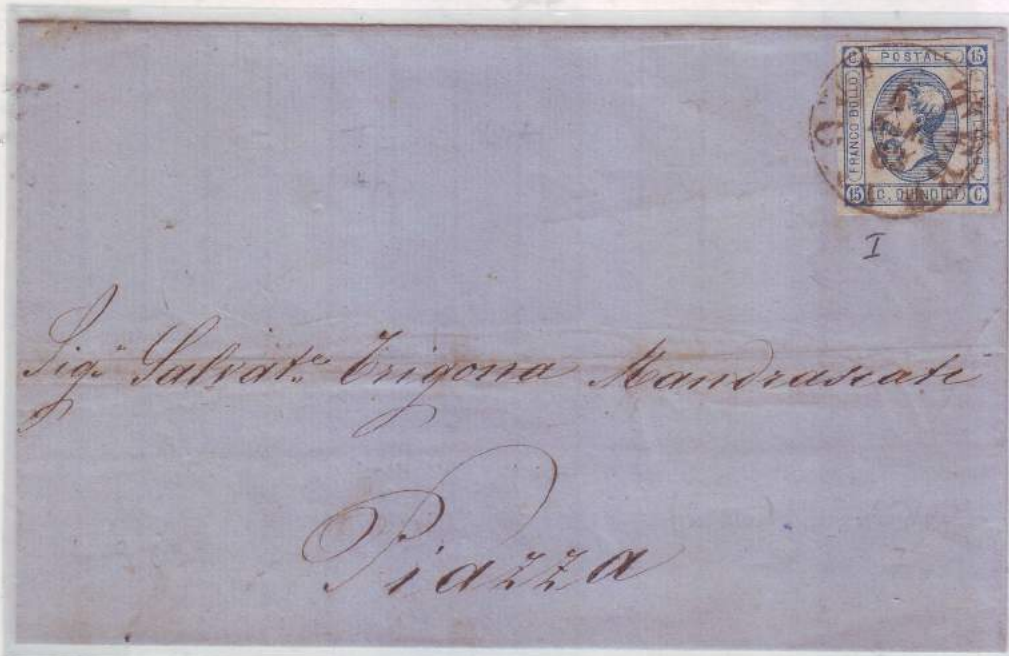 C POSTALE 15
FRANCO BOLLO
15 C. QUINDICI C.
I
Sigr. Salvat.re Trigona Mandrascate
Piazza